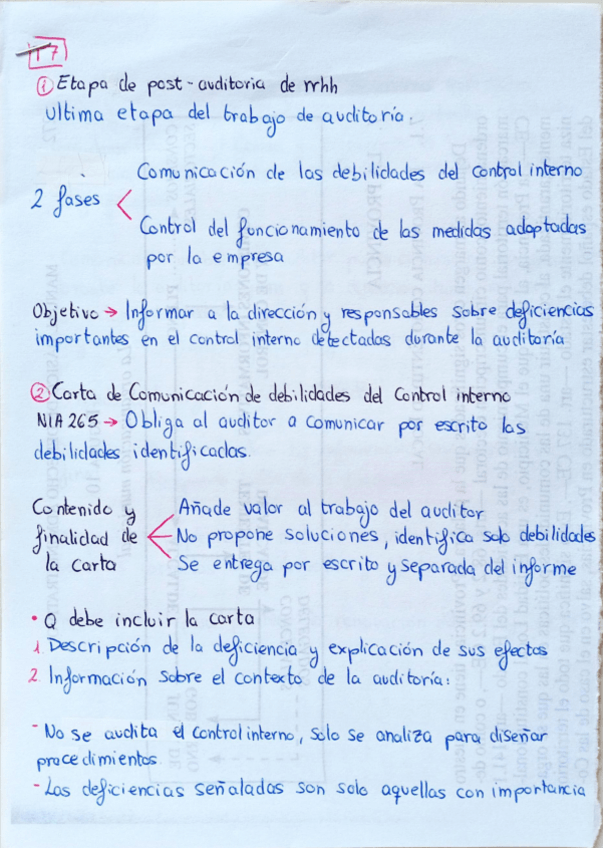 T7
① Etapa de post-auditoria de rrhh
Ultima etapa del trabajo de auditoría.
Comunicación de las debilidades del control interno
2 fases
Control del funcionamiento de las medidas adoptadas
por la empresa
Objetivo → Informar a la dirección y responsables sobre deficiencias
importantes en el control interno detectadas durante la auditoría
② Carta de Comunicación de debilidades del Control interno
NIA 265 → Obliga al auditor a comunicar por escrito las
debilidades identificadas.
Contenido y
finalidad de
la carta
Añade valor al trabajo del auditor
No propone soluciones, identifica solo debilidades
Se entrega por escrito y separada del informe
• Q debe incluir la carta
1. Descripción de la deficiencia y explicación de sus efectos
2. Información sobre el contexto de la auditoría:
- No se audita el control interno, solo se analiza para diseñar
procedimientos
- Las deficiencias señaladas son solo aquellas con importancia